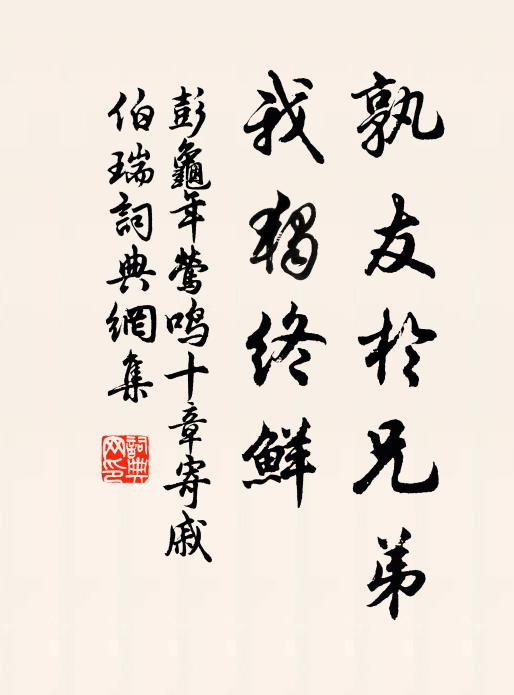 孰友於兄弟
我獨終鮮
彭龜年鶯鳴十章寄戚
伯瑞詞典網集
詞典
网印